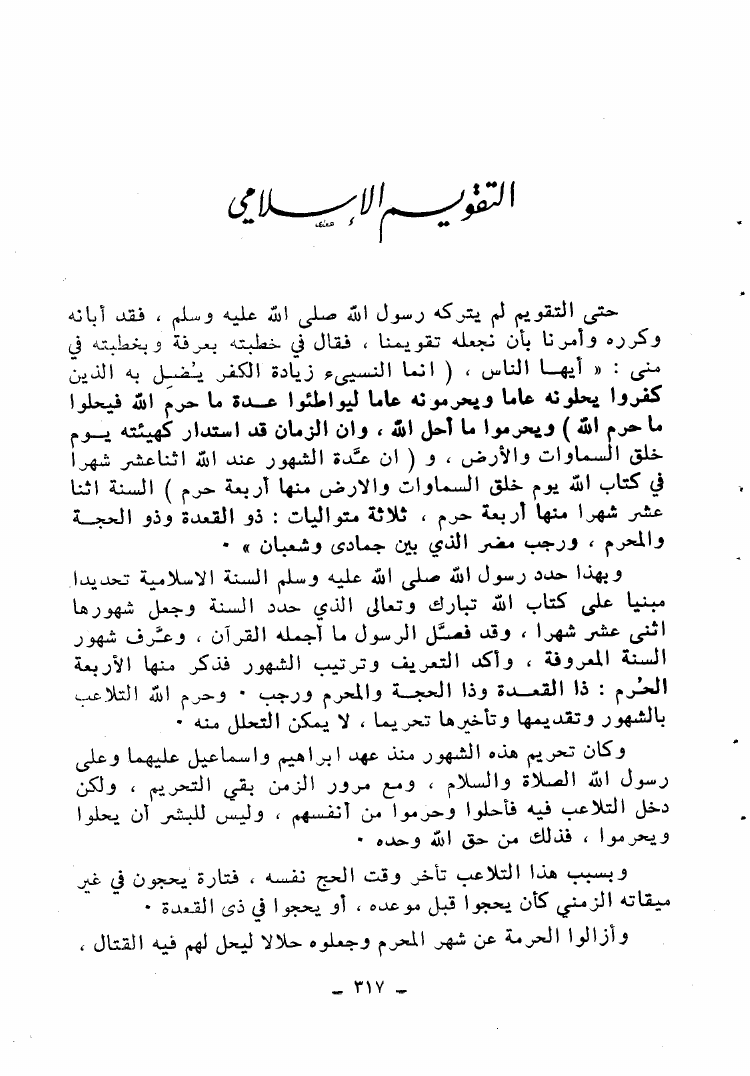 التقويم الإسلامي
حتى التقويم لم يتركه رسول الله صلى الله عليه وسلم ، فقد أبانه
وكرره وأمرنا بأن نجعله تقويمنا ، فقال في خطبته بعرفة وبخطبته في
منى : « أيها الناس ، ( انما النسيء زيادة الكفر يُضل به الذين
كفروا يحلونه عاما ويحرمونه عاما ليواطئوا عدة ما حرم الله فيحلوا
ما حرم الله ) ويحرموا ما أحل الله ، وان الزمان قد استدار كهيئته يوم
خلق السماوات والأرض ، و ( ان عدَّة الشهور عند الله اثنا عشر شهرا
في كتاب الله يوم خلق السماوات والارض منها أربعة حرم ) السنة اثنا
عشر شهرا منها أربعة حرم ، ثلاثة متواليات : ذو القعدة وذو الحجة
والمحرم ، ورجب مضر الذي بين جمادى وشعبان » .
وبهذا حدد رسول الله صلى الله عليه وسلم السنة الاسلامية تحديدا
مبنيا على كتاب الله تبارك وتعالى الذي حدد السنة وجعل شهورها
اثنى عشر شهرا ، وقد فصَّل الرسول ما أجمله القرآن ، وعرَّف شهور
السنة المعروفة ، وأكد التعريف وترتيب الشهور فذكر منها الأربعة
الحُرم : ذا القعدة وذا الحجة والمحرم ورجب . وحرم الله التلاعب
بالشهور وتقديمها وتأخيرها تحريما ، لا يمكن التحلل منه .
وكان تحريم هذه الشهور منذ عهد ابراهيم واسماعيل عليهما وعلى
رسول الله الصلاة والسلام ، ومع مرور الزمن بقي التحريم ، ولكن
دخل التلاعب فيه فأحلوا وحرموا من أنفسهم ، وليس للبشر أن يحلوا
ويحرموا ، فذلك من حق الله وحده .
وبسبب هذا التلاعب تأخر وقت الحج نفسه ، فتارة يحجون في غير
ميقاته الزمني كأن يحجوا قبل موعده ، أو يحجوا في ذى القعدة .
وأزالوا الحرمة عن شهر المحرم وجعلوه حلالا ليحل لهم فيه القتال ،
_ ٣١٧ _